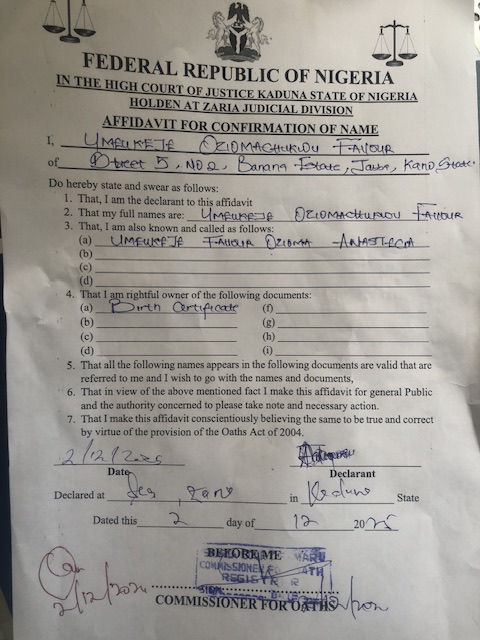 FEDERAL REPUBLIC OF NIGERIA
IN THE HIGH COURT OF JUSTICE KADUNA STATE OF NIGERIA
HOLDEN AT ZARIA JUDICIAL DIVISION
AFFIDAVIT FOR CONFIRMATION OF NAME
I, UMEUKEJE OZIOMACHUKWU FAVOUR
of Street 5, NO 2, Banana Estate, Jaba, Kano State
Do hereby state and swear as follows:
1. That, I am the declarant to this affidavit
2. That my full names are: UMEUKEJE OZIOMACHUKWU FAVOUR
3. That, I am also known and called as follows:
(a) UMEUKEJE FAVOUR OZIOMA ANASTECIA
(b)
(c)
(d)
4. That I am rightful owner of the following documents:
(a) Birth Certificate (f)
(b) (g)
(c) (h)
(d) (i)
5. That all the following names appears in the following documents are valid that are
referred to me and I wish to go with the names and documents,
6. That in view of the above mentioned fact I make this affidavit for general Public
and the authority concerned to please take note and necessary action.
7. That I make this affidavit conscientiously believing the same to be true and correct
by virtue of the provision of the Oaths Act of 2004.
2/12/2025
Date Declarant
Declared at in Kaduna State
Dated this 2 day of 12 2025
BEFORE ME
COMMISSIONER
REGISTRAR
SIGN
2/12/2025
COMMISSIONER FOR OATHS